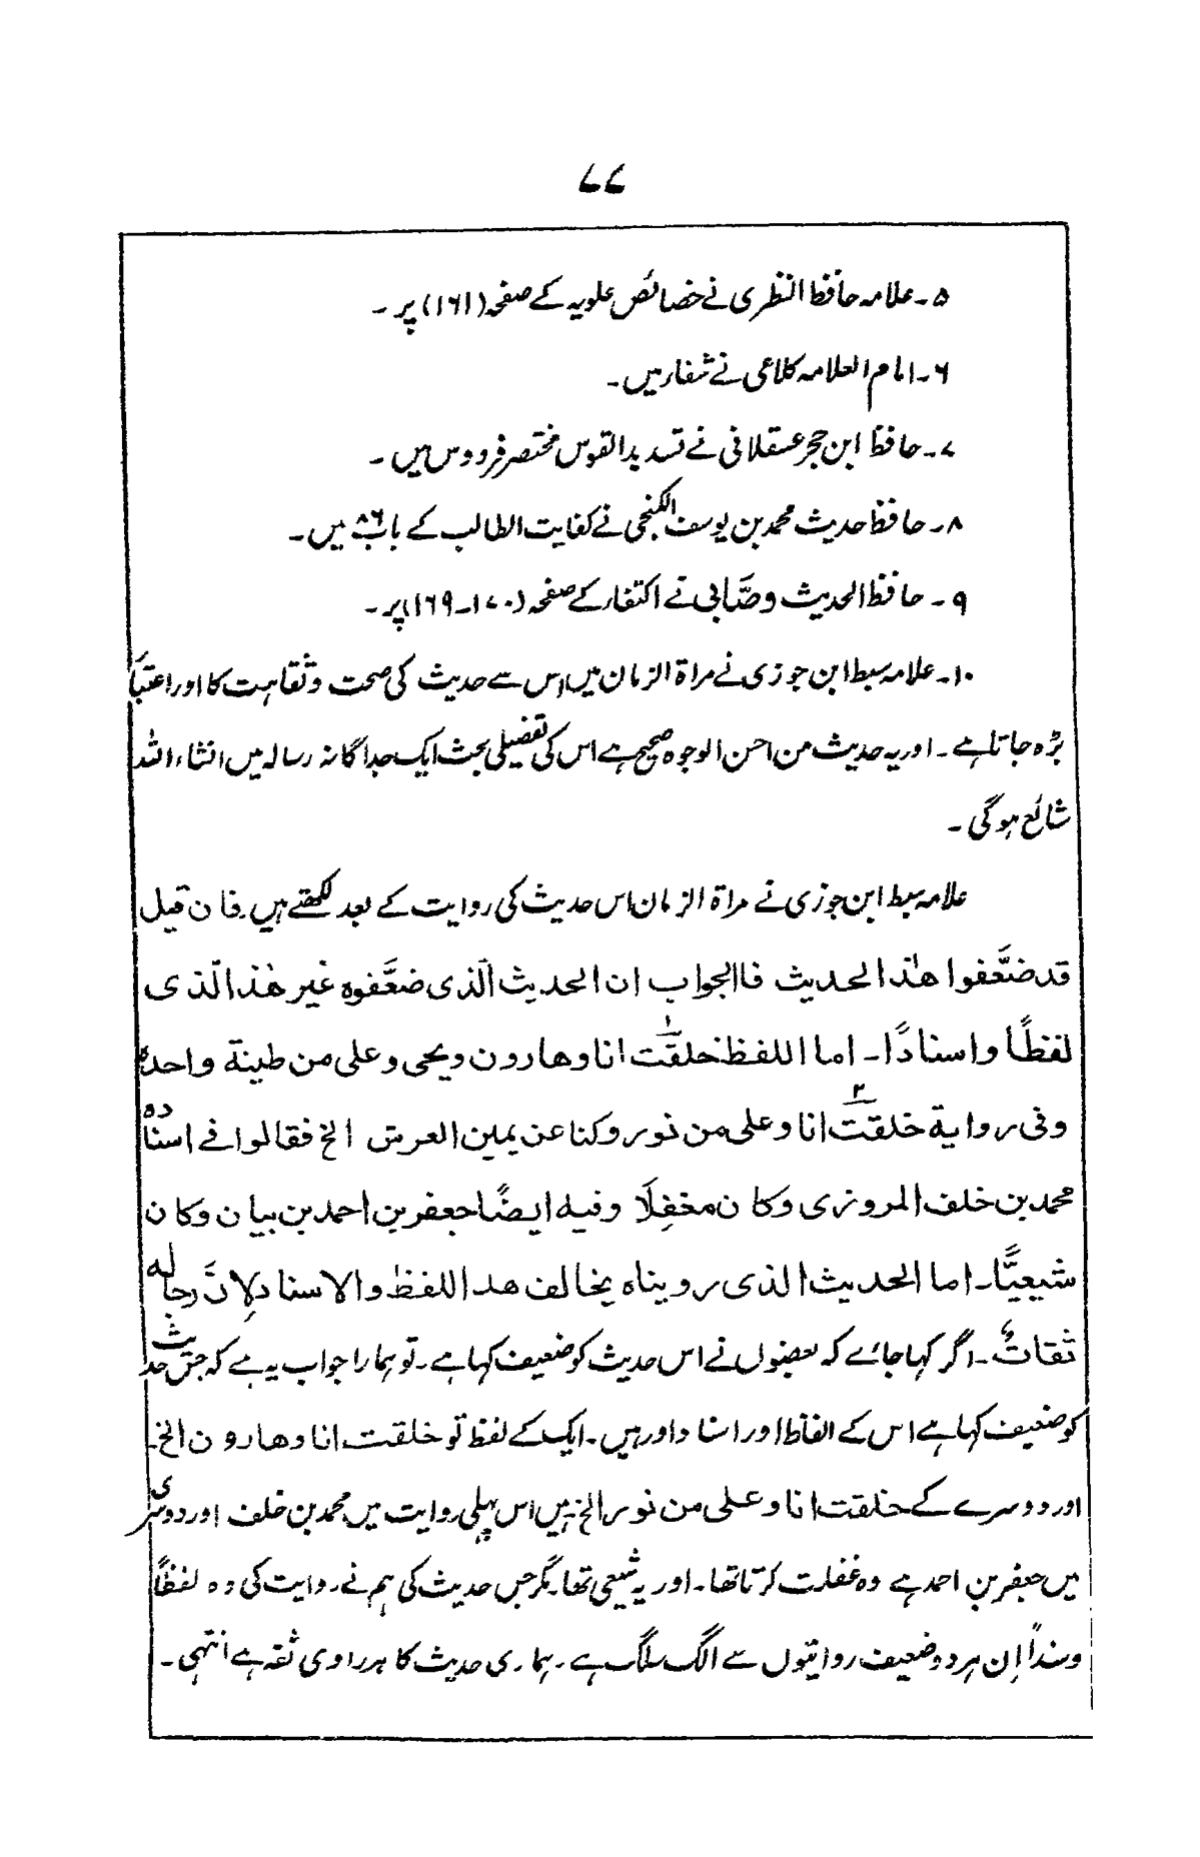 ۷۷
۵۔ علامہ حافظ النظری نے خصائص علویہ کے صفحہ (۱۶۱) پر۔
۶۔ امام العلامہ کلاعی نے شفار میں۔
۷۔ حافظ ابن حجر عسقلانی نے تسدید القوس مختصر فردوس میں۔
۸۔ حافظ حدیث محمد بن یوسف الکنجی نے کفایت الطالب کے باب ۸۶ میں۔
۹۔ حافظ الحدیث وصّابی نے اکتفار کے صفحہ (۱۷۰-۱۶۹) پر۔
۱۰۔ علامہ سبط ابن جوزی نے مراۃ الزمان میں اس سے حدیث کی صحت وثقاہت کا اور اعتبار
بڑھ جاتا ہے۔ اور یہ حدیث من احسن الوجوہ صحیح ہے اس کی تفصیلی بحث ایک جداگانہ رسالہ میں انشاء اللہ
شائع ہوگی۔
علامہ سبط ابن جوزی نے مراۃ الزمان اس حدیث کی روایت کے بعد لکھتے ہیں۔ فان قیل
قد ضعّفوا هٰذا الحدیث فاالجواب ان الحدیث الّذی ضعّفوه غیر هٰذا الّذی
لفظًا واسنادًا۔ اما اللفظ خلقت۱ انا وهارون ویحی وعلی من طینة واحدة
وفی روایة خلقت۲ انا وعلی من نور وکنا عن یمین العرش الخ فقالوا فے اسناده
محمد بن خلف المروزی وکان مغفلًا وفیه ایضًا جعفر بن احمد بن بیان وکان
شیعیًّا۔ اما الحدیث الذی رویناه یخالف هذا اللفظ والاسناد لِانَّ رجاله
ثقاتٌ۔ اگر کہا جائے کہ بعضوں نے اس حدیث کو ضعیف کہا ہے۔ تو ہمارا جواب یہ ہے کہ جس حدیث
کو ضعیف کہا ہے اس کے الفاظ اور اسناد اور ہیں۔ ایک کے لفظ تو خلقت انا وهارون الخ۔
اور دوسرے کے خلقت انا وعلی من نور الخ ہیں اس پہلی روایت میں محمد بن خلف اور دوسری
میں جعفر بن احمد ہے وہ غفلت کرتا تھا۔ اور یہ شیعی تھا۔ مگر جس حدیث کی ہم نے روایت کی وہ لفظاً
وسنداً اِن ہر دو ضعیف روایتوں سے الگ سلگ ہے۔ ہماری حدیث کا ہر راوی ثقہ ہے انتہی۔